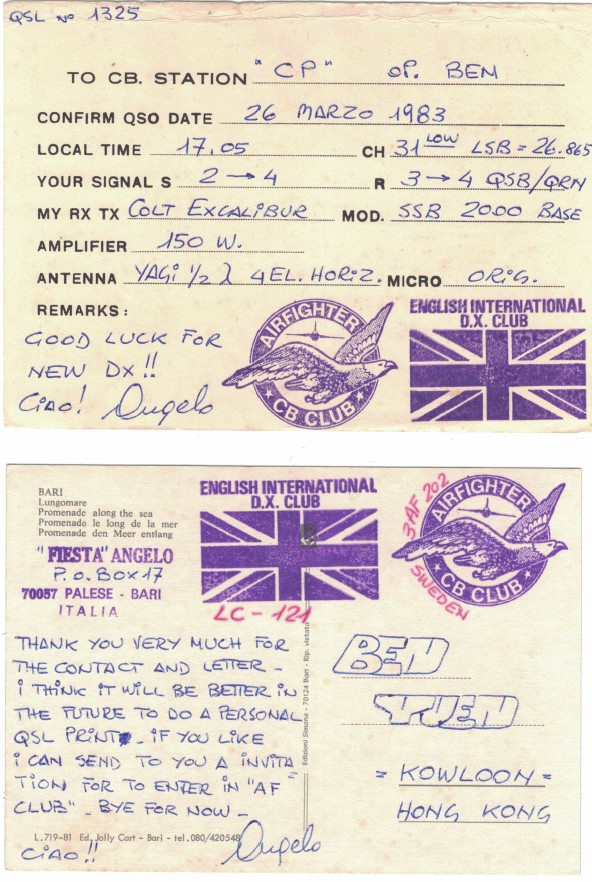 QSL No 1325
TO CB. STATION "CP" OP. BEN
CONFIRM QSO DATE 26 MARZO 1983
LOCAL TIME 17.05 CH 31 LOW LSB = 26.865
YOUR SIGNAL S 2 → 4 R 3 → 4 QSB/QRN
MY RX TX COLT EXCALIBUR MOD. SSB 2000 BASE
AMPLIFIER 150 W.
ANTENNA YAGI 1/2 λ 4 EL. HORIZ. MICRO ORIG.
REMARKS:
GOOD LUCK FOR
NEW DX!!
CIAO! Angelo
AIRFIGHTER
CB CLUB
ENGLISH INTERNATIONAL
D.X. CLUB
BARI
Lungomare
Promenade along the sea
Promenade le long de la mer
Promenade den Meer entlang
"FIESTA" ANGELO
P.O. BOX 17
70057 PALESE - BARI
ITALIA
ENGLISH INTERNATIONAL
D.X. CLUB
LC - 121
3AF 202
AIRFIGHTER
CB CLUB
SWEDEN
THANK YOU VERY MUCH FOR
THE CONTACT AND LETTER -
I THINK IT WILL BE BETTER IN
THE FUTURE TO DO A PERSONAL
QSL PRINT - IF YOU LIKE
I CAN SEND TO YOU A INVITA
TION FOR TO ENTER IN "AF
CLUB" - BYE FOR NOW -
CIAO!! Angelo
L.719-81 Ed. Jolly Cart - Bari - tel. 080/420548
Edizioni Simone - 70124 Bari - Rip. vietata
BEN
YUEN
= KOWLOON =
HONG KONG